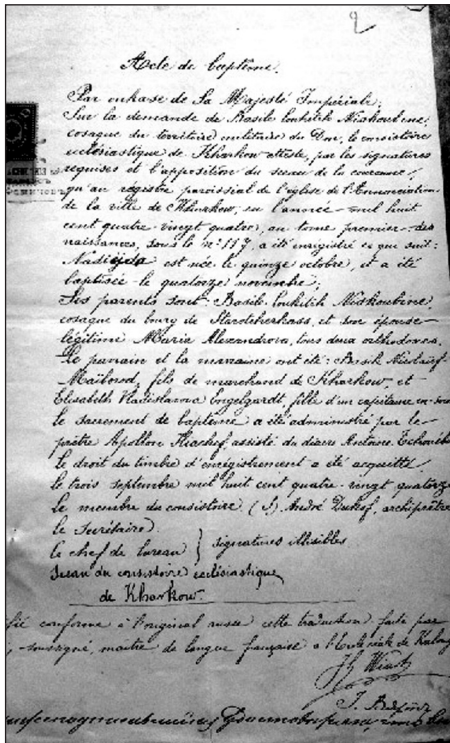 2
Acte de baptême.
Par oukase de Sa Majesté Impériale;
Sur la demande de Basile Loukitch Niskoubine,
cosaque du territoire militaire du Don, le consistoire
ecclésiastique de Kharkow atteste, par les signatures
requises et l'apposition du sceau de la couronne,
qu'au registre paroissial de l'église de l'Annonciation
de la ville de Kharkow, en l'année mil huit
cent quatre vingt quatre, au tome premier des
naissances, sous le nº 117, a été enregistré ce qui suit:
Nadiejda est née le quinze octobre, et a été
baptisée le quatorze novembre;
Ses parents sont: Basile Loukitch Niskoubine,
cosaque du bourg de Starotcherkassk, et son épouse
légitime Maria Alexandrovna, tous deux orthodoxes.
Le parrain et la marraine ont été: Basile
fils de marchand de Kharkow, et
Elisabeth Vladislavna Engelgardt, fille d'un capitaine en
le sacrement de baptême a été administré par le
prêtre Apollon assisté du diacre Antoine
le droit du timbre d'enregistrement a été acquitté
le trois septembre mil huit cent quatre-vingt quatorze
le membre du consistoire (S) André archiprêtre
le secrétaire
le chef de bureau } signatures illisibles
Sceau du consistoire ecclésiastique
de Kharkow.
conforme à l'original russe cette traduction faite par
soussigné, maître de langue française à l'école réale de